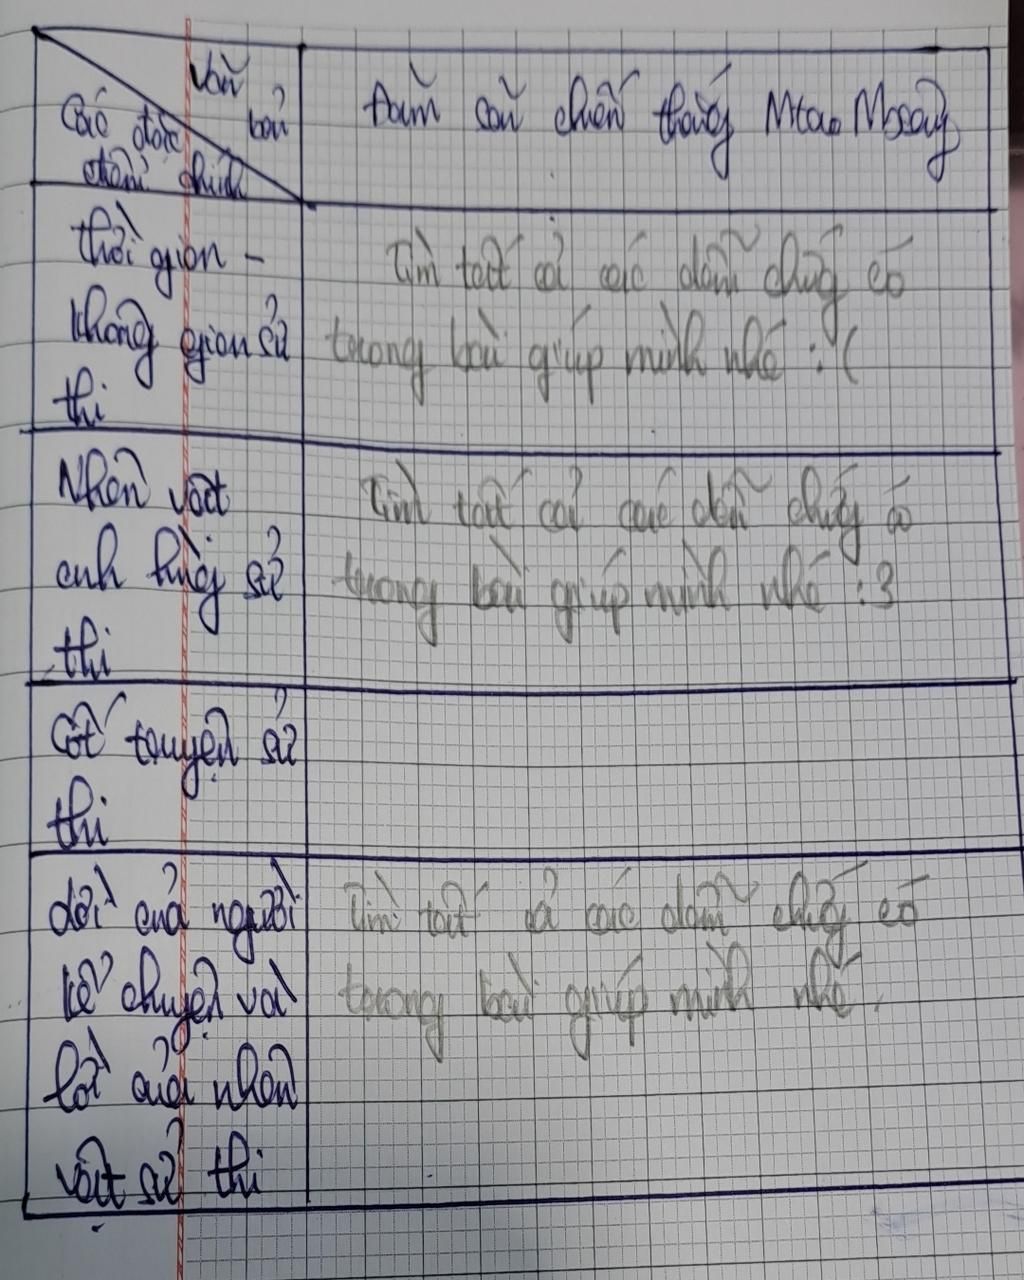 Văn bản
Các đặc
điểm chính
Đăm Săn chiến thắng Mtao Mxây
thời gian -
không gian sử
thi
Tìm tất cả các dẫn chứng có
trong bài giúp mình nhé :(
Nhân vật
anh hùng sử
thi
Tìm tất cả các dẫn chứng có
trong bài giúp mình nhé :3
Cốt truyện sử
thi
Lời của người
kể chuyện và
lời của nhân
vật sử thi
Tìm tất cả các dẫn chứng có
trong bài giúp mình nhé.